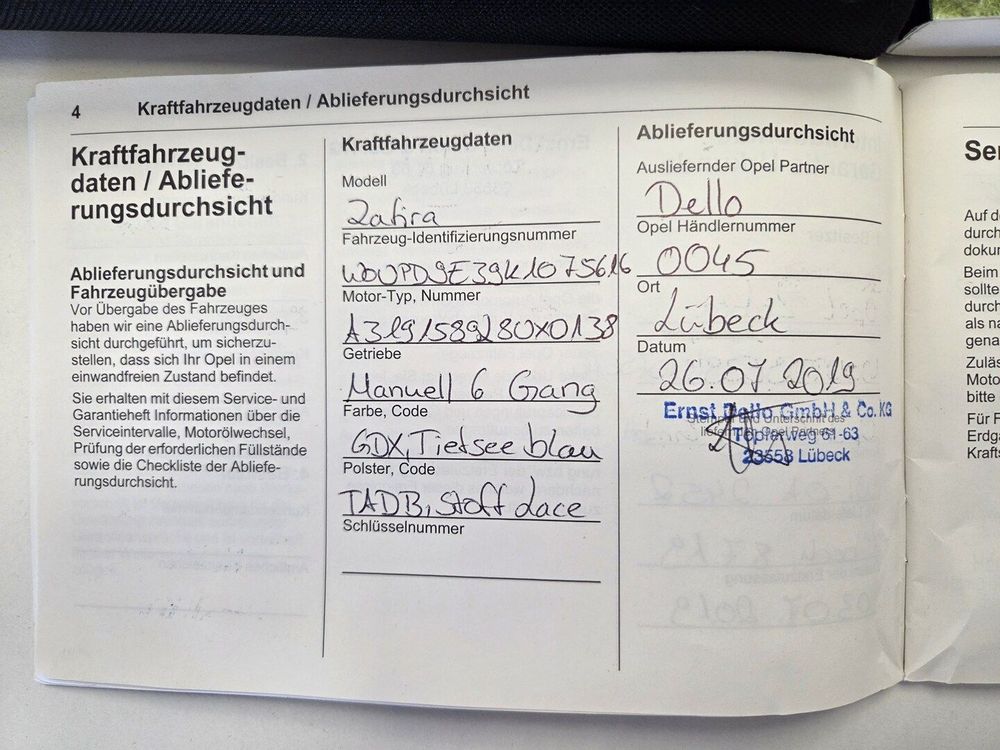 4 Kraftfahrzeugdaten / Ablieferungsdurchsicht
Kraftfahrzeug-
daten / Abliefe-
rungsdurchsicht
Ablieferungsdurchsicht und
Fahrzeugübergabe
Vor Übergabe des Fahrzeuges
haben wir eine Ablieferungsdurch-
sicht durchgeführt, um sicherzu-
stellen, dass sich Ihr Opel in einem
einwandfreien Zustand befindet.
Sie erhalten mit diesem Service- und
Garantieheft Informationen über die
Serviceintervalle, Motorölwechsel,
Prüfung der erforderlichen Füllstände
sowie die Checkliste der Abliefe-
rungsdurchsicht.
Kraftfahrzeugdaten
Modell
Zafira
Fahrzeug-Identifizierungsnummer
W0UPD9E39K1075616
Motor-Typ, Nummer
A319/589280X0138
Getriebe
Manuell 6 Gang
Farbe, Code
GDX, Tiefsee blau
Polster, Code
TADB, Stoff Lace
Schlüsselnummer
Ablieferungsdurchsicht
Ausliefernder Opel Partner
Dello
Opel Händlernummer
0045
Ort
Lübeck
Datum
26.07.2019
Ernst Dello GmbH & Co. KG
Stempel und Unterschrift des
liefernden Opel Partners
Töpferweg 61-63
23558 Lübeck
Ser
Auf de
durch
dokum
Beim
sollte
durch
als na
gena
Zuläs
Moto
bitte
Für F
Erdga
Krafts